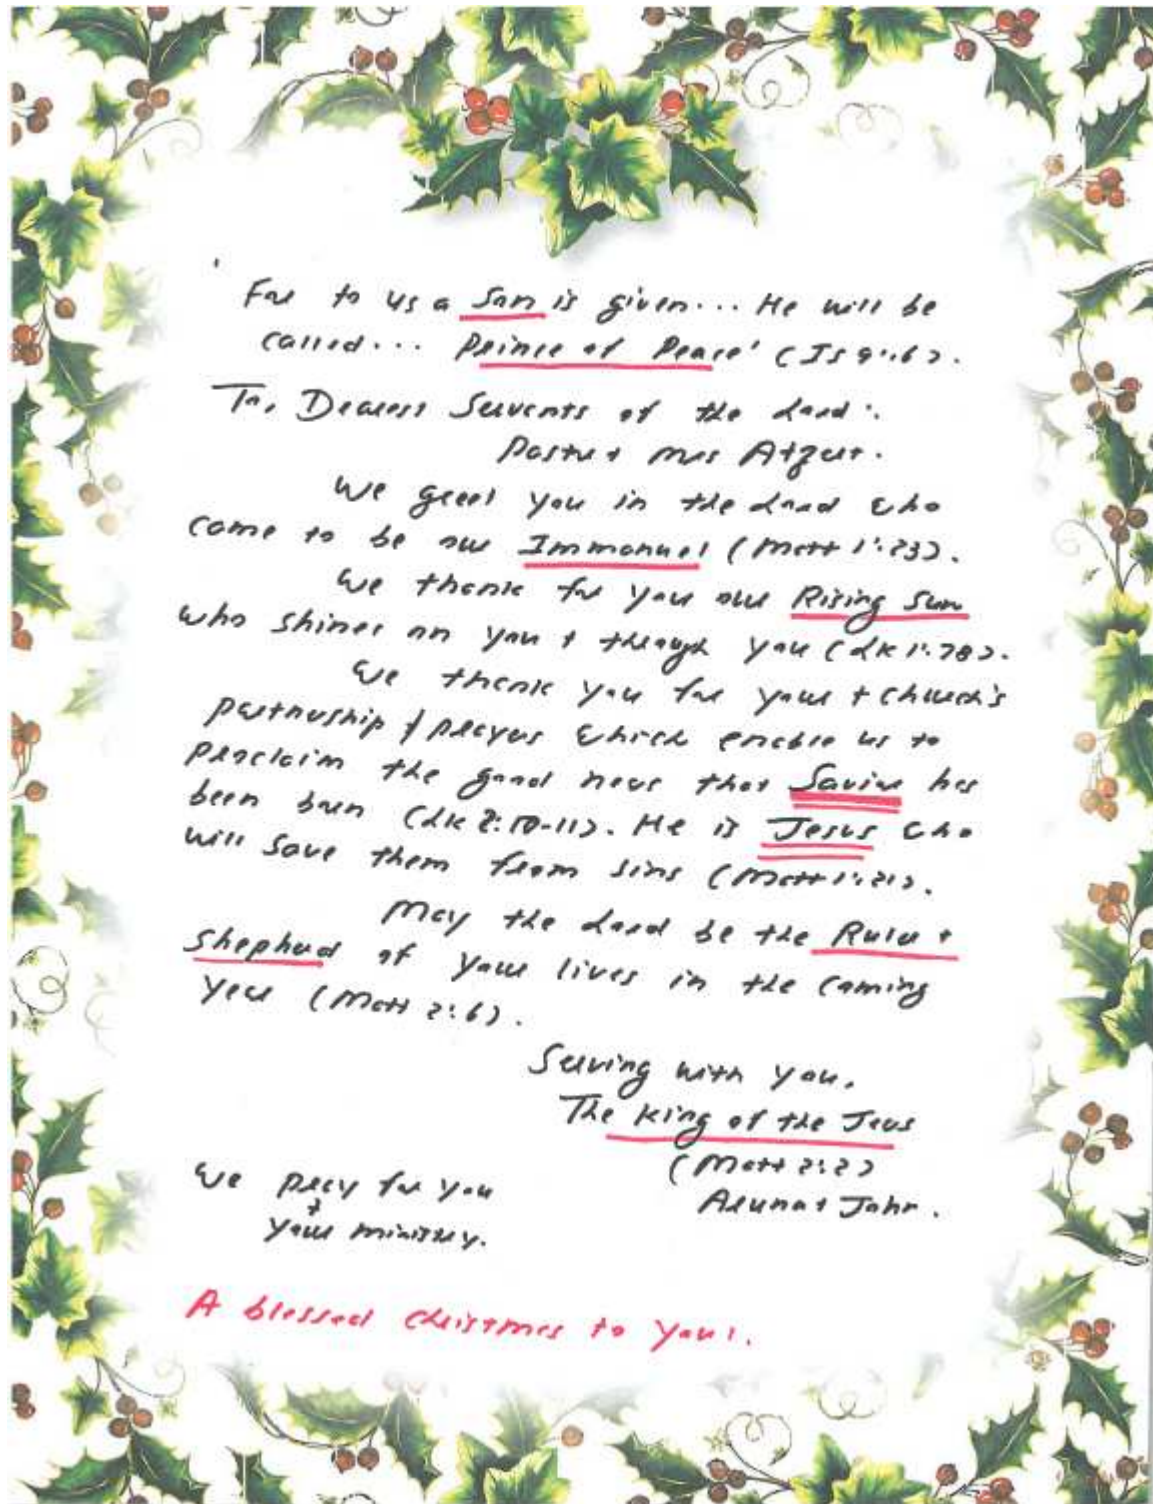 'For to us a Son is given... He will be
called... Prince of Peace' (Is 9:6).
To, Dearest Servants of the Lord:
Pastor + Mrs
We greet you in the Lord who
came to be our Immanuel (Matt 1:23).
We thank for you our Rising Sun
who shines on you + through you (Lk 1:78).
We thank you for your + Church's
partnership + prayers which enable us to
proclaim the good news that Savior has
been born (Lk 2:10-11). He is Jesus who
will save them from sins (Matt 1:21).
May the Lord be the Ruler +
Shepherd of your lives in the coming
year (Matt 2:6).
Serving with you,
The King of the Jews
(Matt 2:2)
Aruna + John.
We pray for you
+
your ministry.
A blessed Christmas to you!